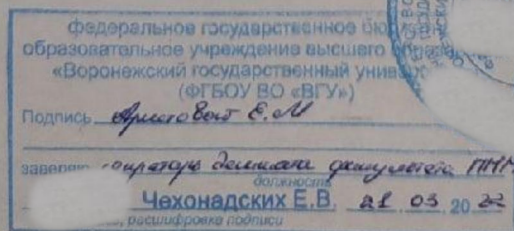 федеральное государственное бю
образовательное учреждение высшего обра
«Воронежский государственный универ
(ФГБОУ ВО «ВГУ»)
Подпись Аристовой Е.М
заверяю оператор деканата факультета ПММ
должность
Чехонадских Е.В. 21 03 20 22
расшифровка подписи